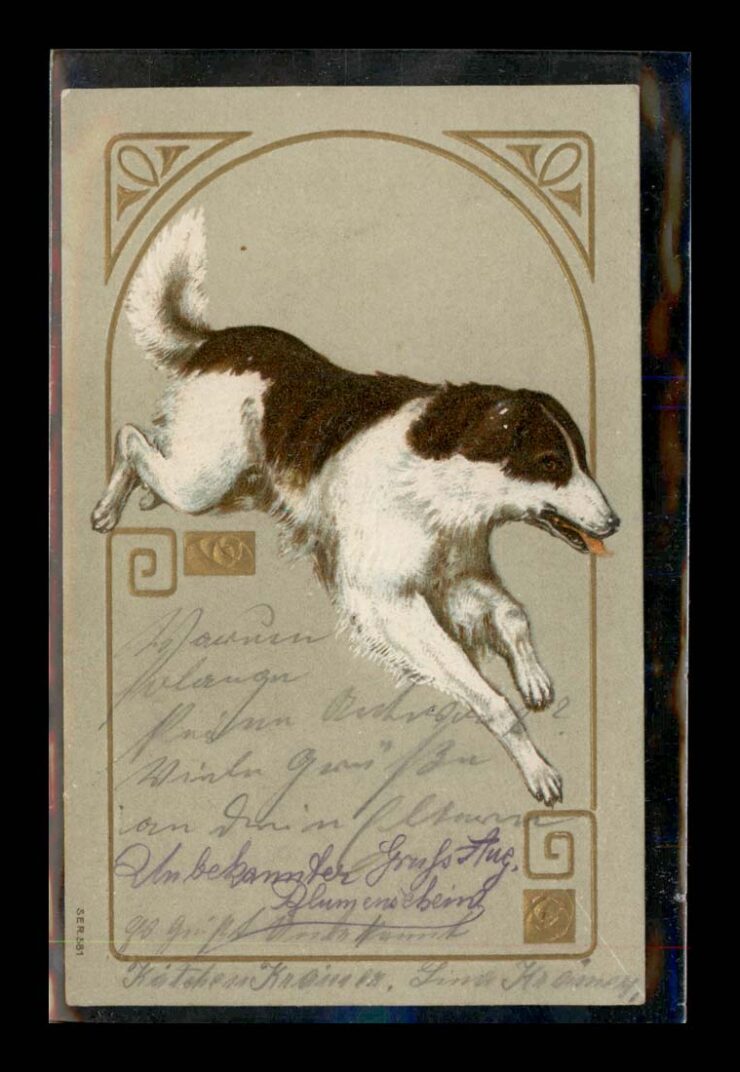 Warum
solange
keine Antwort?
Viele Grüße
an dein Eltern
Unbekannter Gruss Aug.
Blumenschein
Es grüßt Unbekannt
Kätchen Krämer. Lina Krämer.
SER.381